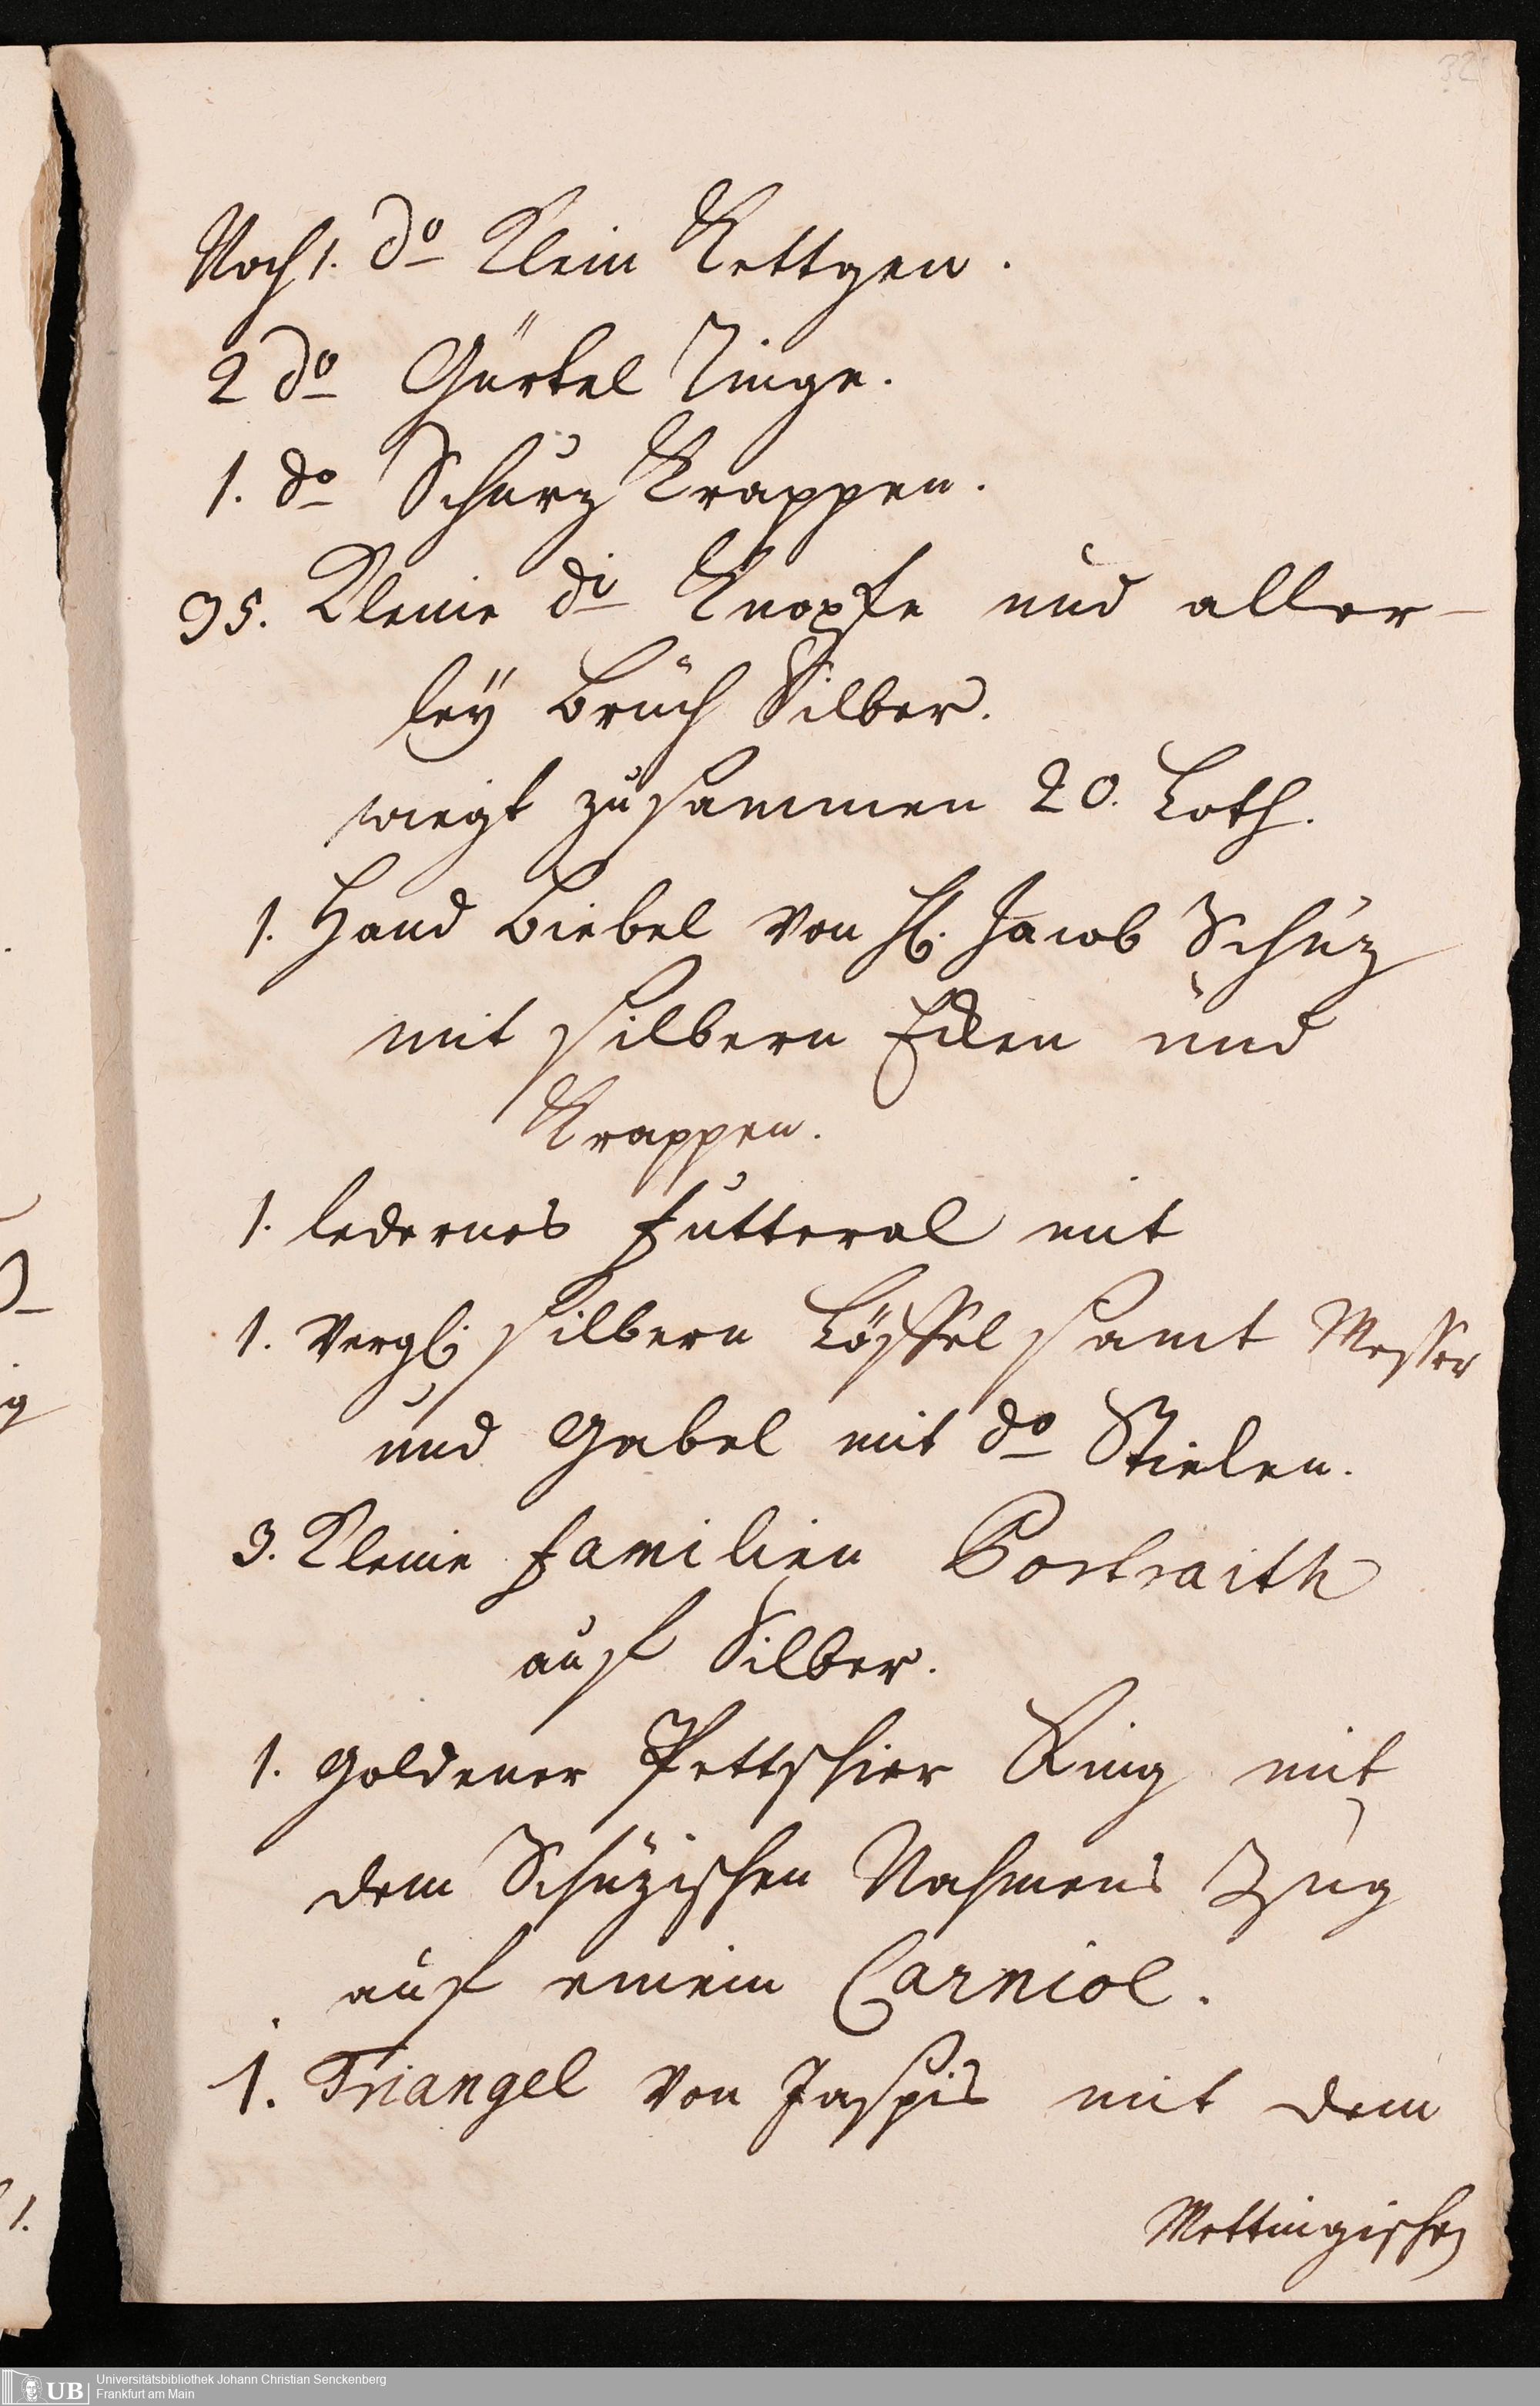 32
Noch 1. do Klein Kettgen.
2 do Gürtel Ringe.
1. do Schurz Krappen.
35. Kleine do Knöpfe und aller-
leÿ Bruch Silber.
wiegt zusammen 20. Loth.
1. Hand Biebel von H. Jacob Schüz
mit silbern Ecken und
Krappen.
1. ledernes Futteral mit
1. vergl: silbern Löffel samt Messer
und Gabel mit do Stielen.
3. Kleine Familien Portraith
auf Silber.
1. Goldener Pettschier Ring mit
dem Schüzischen Nahmens Zug
auf einem Carniol.
1. Triangel von Jaspis mit dem
Mettingischen
g
1.
UB
Universitätsbibliothek Johann Christian Senckenberg
Frankfurt am Main